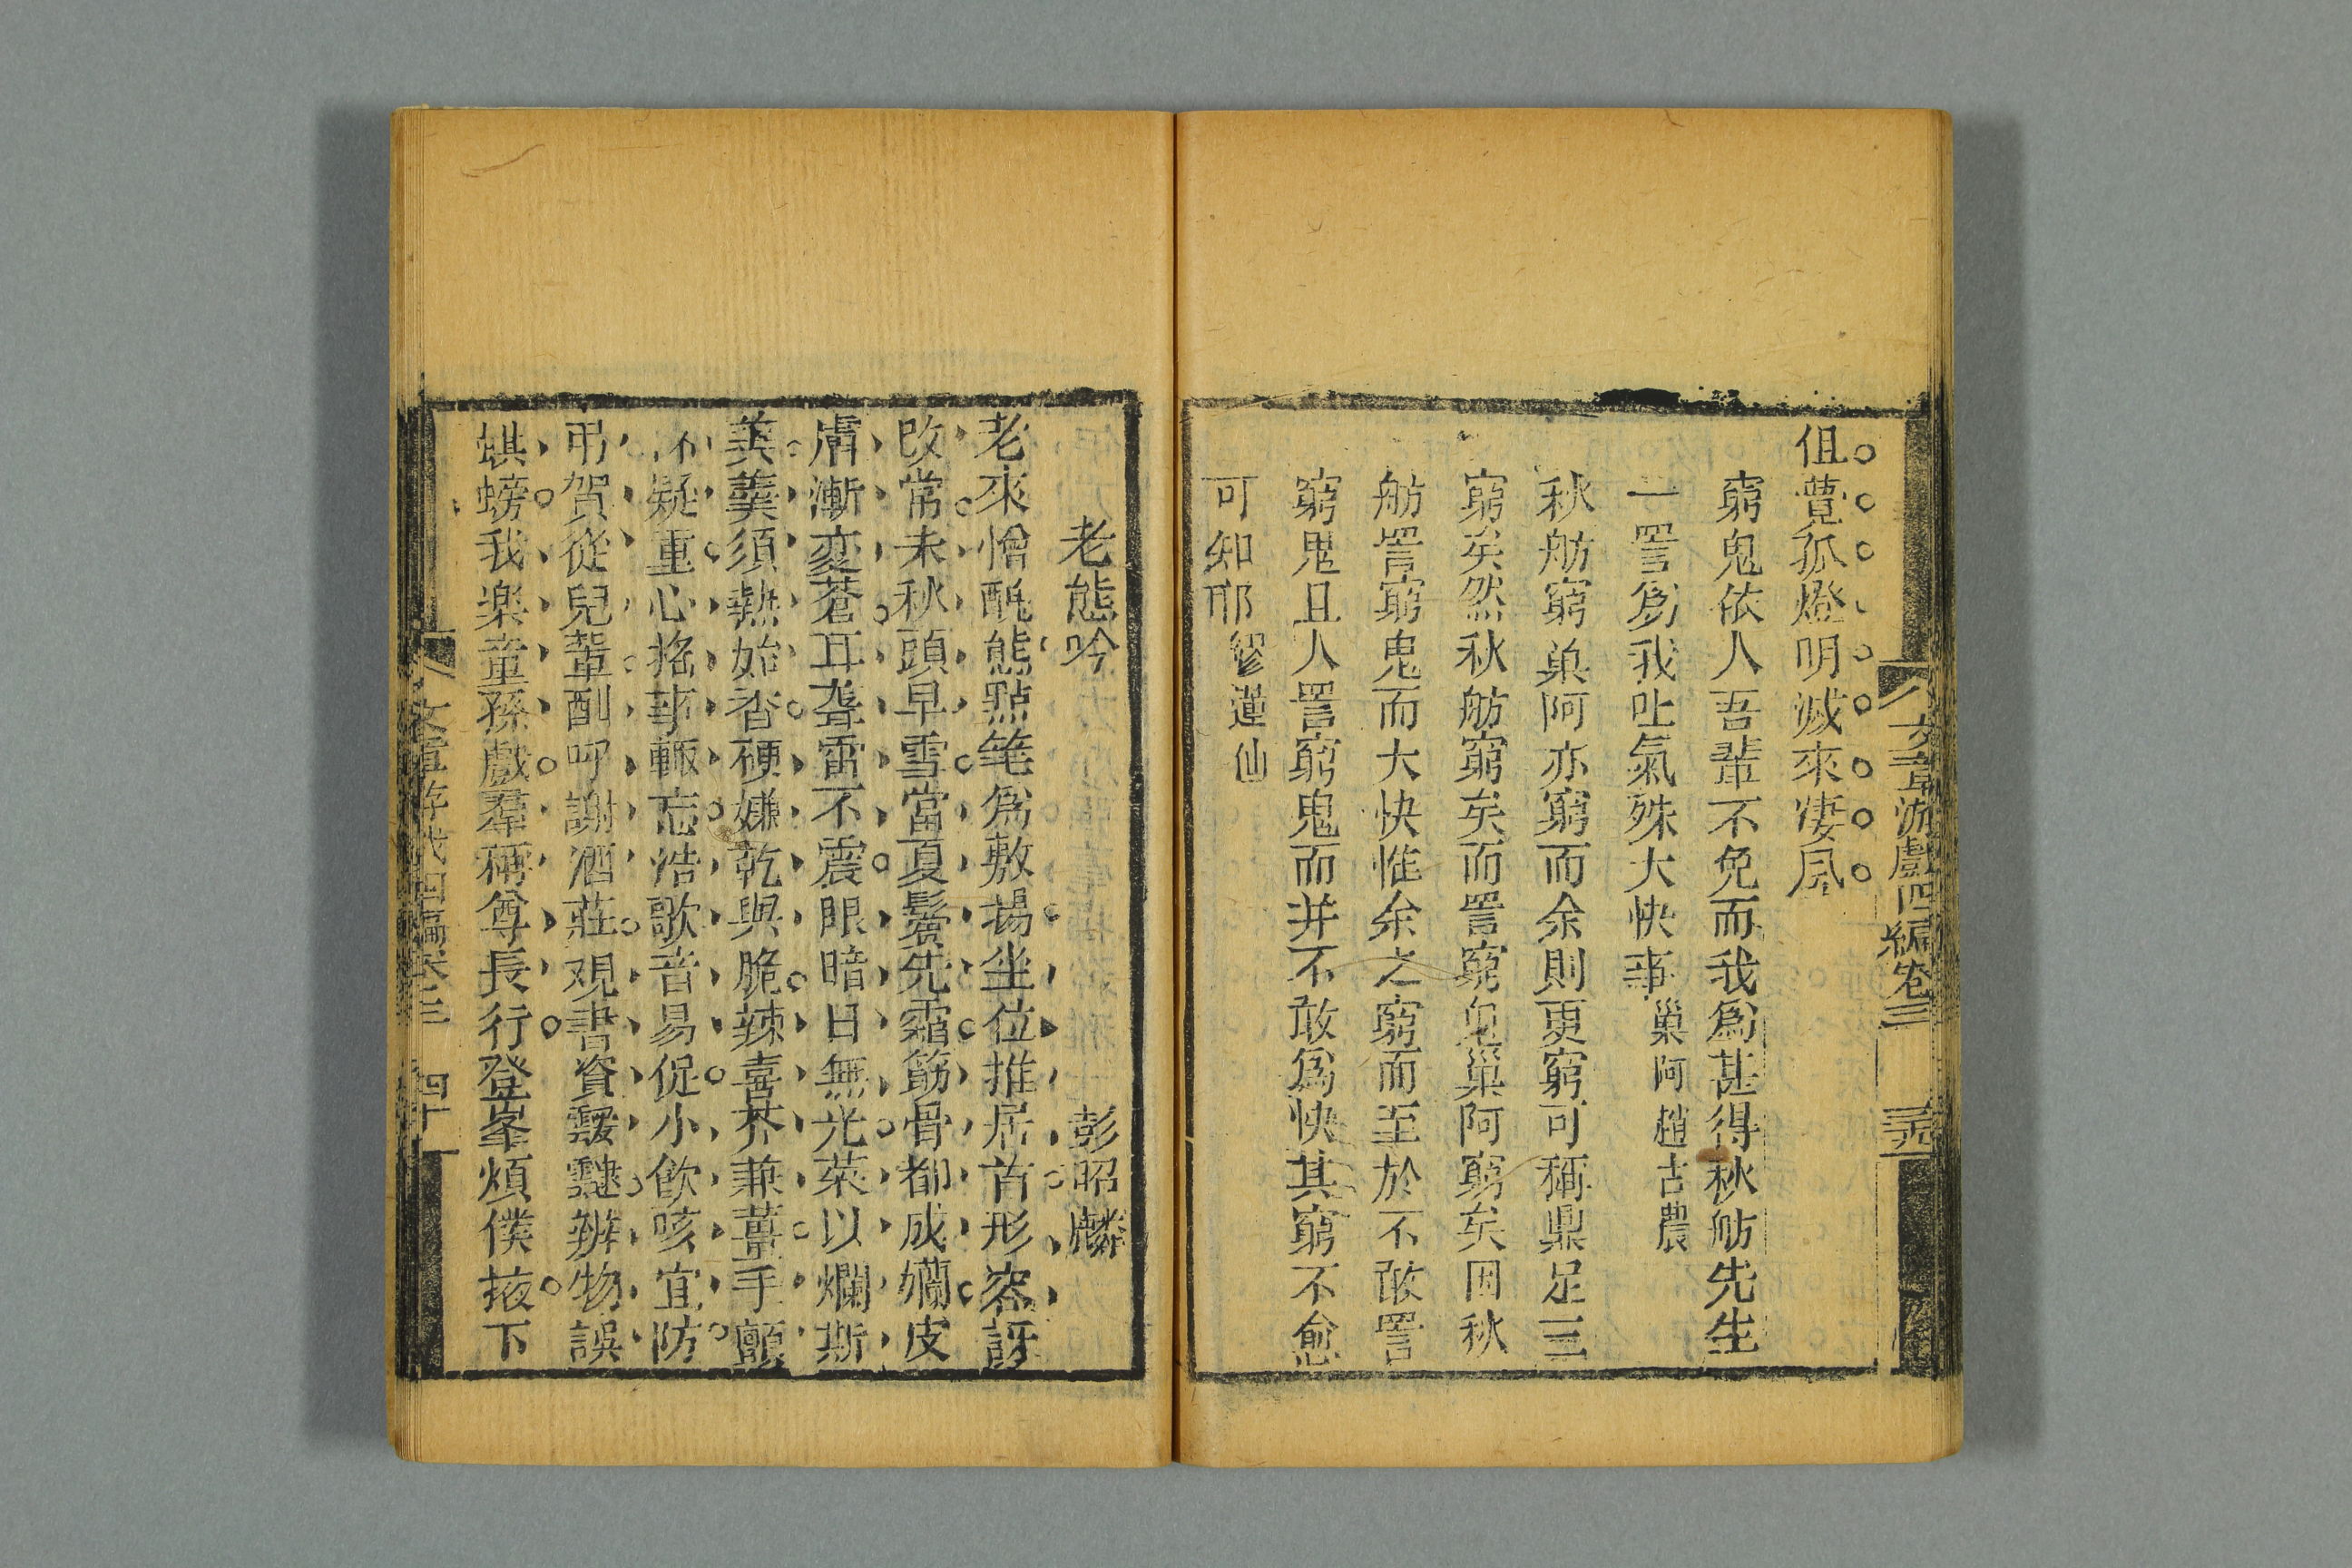 文章游戲四編卷三
但覺孤燈明滅來凄風
窮鬼依人吾輩不免而我爲甚得秋舫先生
一詈爲我吐氣殊大快事巢阿趙古農
秋舫窮巢阿亦窮而余則更窮可稱鼎足三
窮矣然秋舫窮矣而詈窮鬼巢阿窮矣因秋
舫詈窮鬼而大快惟余之窮而至於不敢詈
窮鬼且人詈窮鬼而并不敢爲快其窮不愈
可知耶繆蓮仙
老態吟 彭昭麟
老來憎醜態㸃筆爲敷揚坐位推居首形容訝
改常未秋頭早雪當夏鬢先霜筋骨都成嬾皮
膚漸変蒼耳聾雷不震眼暗日無光菜以爛斯
美羹須熱始香硬嫌乾與脆辣喜芥兼薑手顫
疑重心搖事輙忘浩歌音易促小飮咳宜防
弔賀從兒輩酬呼謝酒莊观書資靉靆辨物誤
蜞螃我楽童孫戲羣稱尊長行登峯煩僕掖下
文章游戲四編卷三 四十一